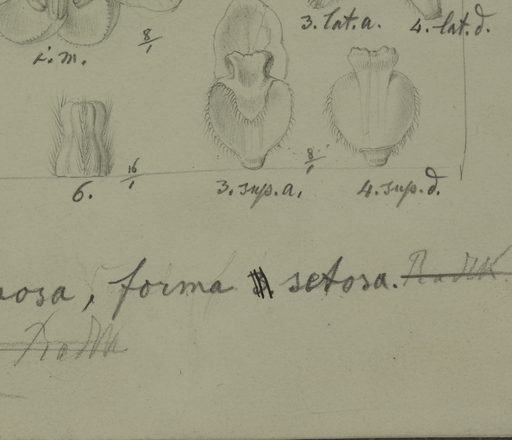 3. lat. a. 4. lat. d.
i. m. 8/1
8/1
16/1
6. 3. sup. a. 4. sup. d.
forma setosa.